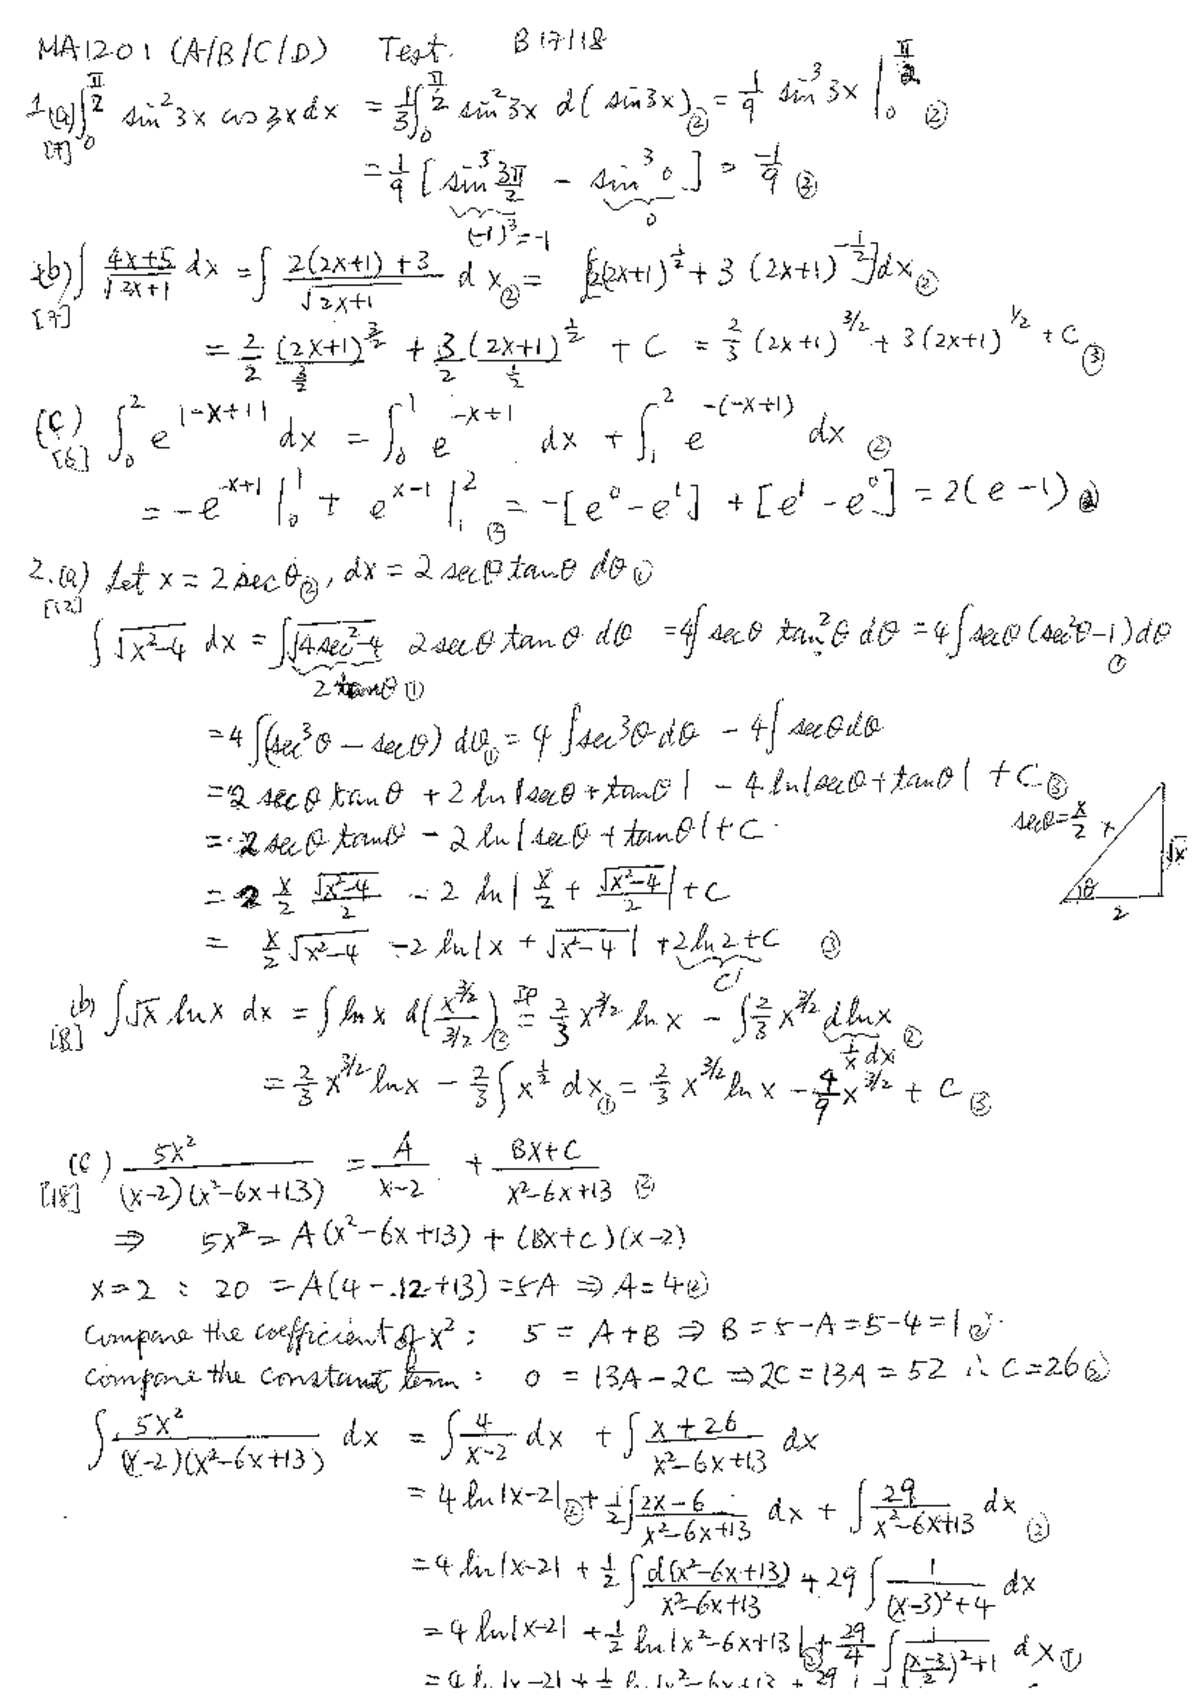 MA1201 (A/B/C/D) Test. B 17/18
1.(a) ∫₀^{π/2} sin²3x cos 3x dx = 1/3 ∫₀^{π/2} sin²3x d(sin3x) ② = 1/9 sin³3x |₀^{π/2} ②
[7]
= 1/9 [sin³ 3π/2 − sin³ 0] = −1/9 ③
(−1)³ = −1 0
(b) ∫ (4x+5)/√(2x+1) dx = ∫ (2(2x+1)+3)/√(2x+1) dx ② = ∫[2(2x+1)^{1/2} + 3(2x+1)^{−1/2}]dx ②
[7]
= 2/2 (2x+1)^{3/2}/(3/2) + 3/2 (2x+1)^{1/2}/(1/2) + C = 2/3 (2x+1)^{3/2} + 3(2x+1)^{1/2} + C ③
(c) ∫₀² e^{|−x+1|} dx = ∫₀¹ e^{−x+1} dx + ∫₁² e^{−(−x+1)} dx ②
[6]
= −e^{−x+1} |₀¹ + e^{x−1} |₁² ② = −[e⁰ − e¹] + [e¹ − e⁰] = 2(e − 1) ②
2.(a) Let x = 2 sec θ ②, dx = 2 secθ tanθ dθ ①
[12]
∫ √(x²−4) dx = ∫ √(4sec²−4) 2 secθ tanθ dθ = 4∫ secθ tan²θ dθ = 4∫ secθ (sec²θ−1) dθ ①
2 tanθ ①
= 4 ∫(sec³θ − secθ) dθ ① = 4 ∫ sec³θ dθ − 4∫ secθ dθ
= 2 secθ tanθ + 2 ln|secθ + tanθ| − 4 ln|secθ + tanθ| + C ③
secθ = x/2 x √x
= 2 secθ tanθ − 2 ln|secθ + tanθ| + C
= 2 x/2 √(x²−4)/2 − 2 ln| x/2 + √(x²−4)/2 | + C
θ 2
= x/2 √(x²−4) − 2 ln|x + √(x²−4)| + 2 ln 2 + C ③
C'
(b) ∫ √x ln x dx = ∫ ln x d(x^{3/2}/(3/2)) ② IP= 2/3 x^{3/2} ln x − ∫ 2/3 x^{3/2} d ln x ②
[8] 1/x dx
= 2/3 x^{3/2} ln x − 2/3 ∫ x^{1/2} dx ① = 2/3 x^{3/2} ln x − 4/9 x^{3/2} + C ③
(c) 5x²/((x−2)(x²−6x+13)) = A/(x−2) + (Bx+C)/(x²−6x+13) ②
[18]
⇒ 5x² = A(x²−6x+13) + (Bx+C)(x−2)
x = 2 : 20 = A(4 − 12 + 13) = 5A ⇒ A = 4 ②
Compare the coefficient of x² : 5 = A+B ⇒ B = 5−A = 5−4 = 1 ②
Compare the constant term : 0 = 13A − 2C ⇒ 2C = 13A = 52 ∴ C = 26 ②
∫ 5x²/((x−2)(x²−6x+13)) dx = ∫ 4/(x−2) dx + ∫ (x+26)/(x²−6x+13) dx
= 4 ln|x−2| ② + 1/2 ∫ (2x−6)/(x²−6x+13) dx + ∫ 29/(x²−6x+13) dx ②
= 4 ln|x−2| + 1/2 ∫ d(x²−6x+13)/(x²−6x+13) + 29 ∫ 1/((x−3)²+4) dx
= 4 ln|x−2| + 1/2 ln|x²−6x+13| ② + 29/4 ∫ 1/(((x−3)/2)²+1) dx ①